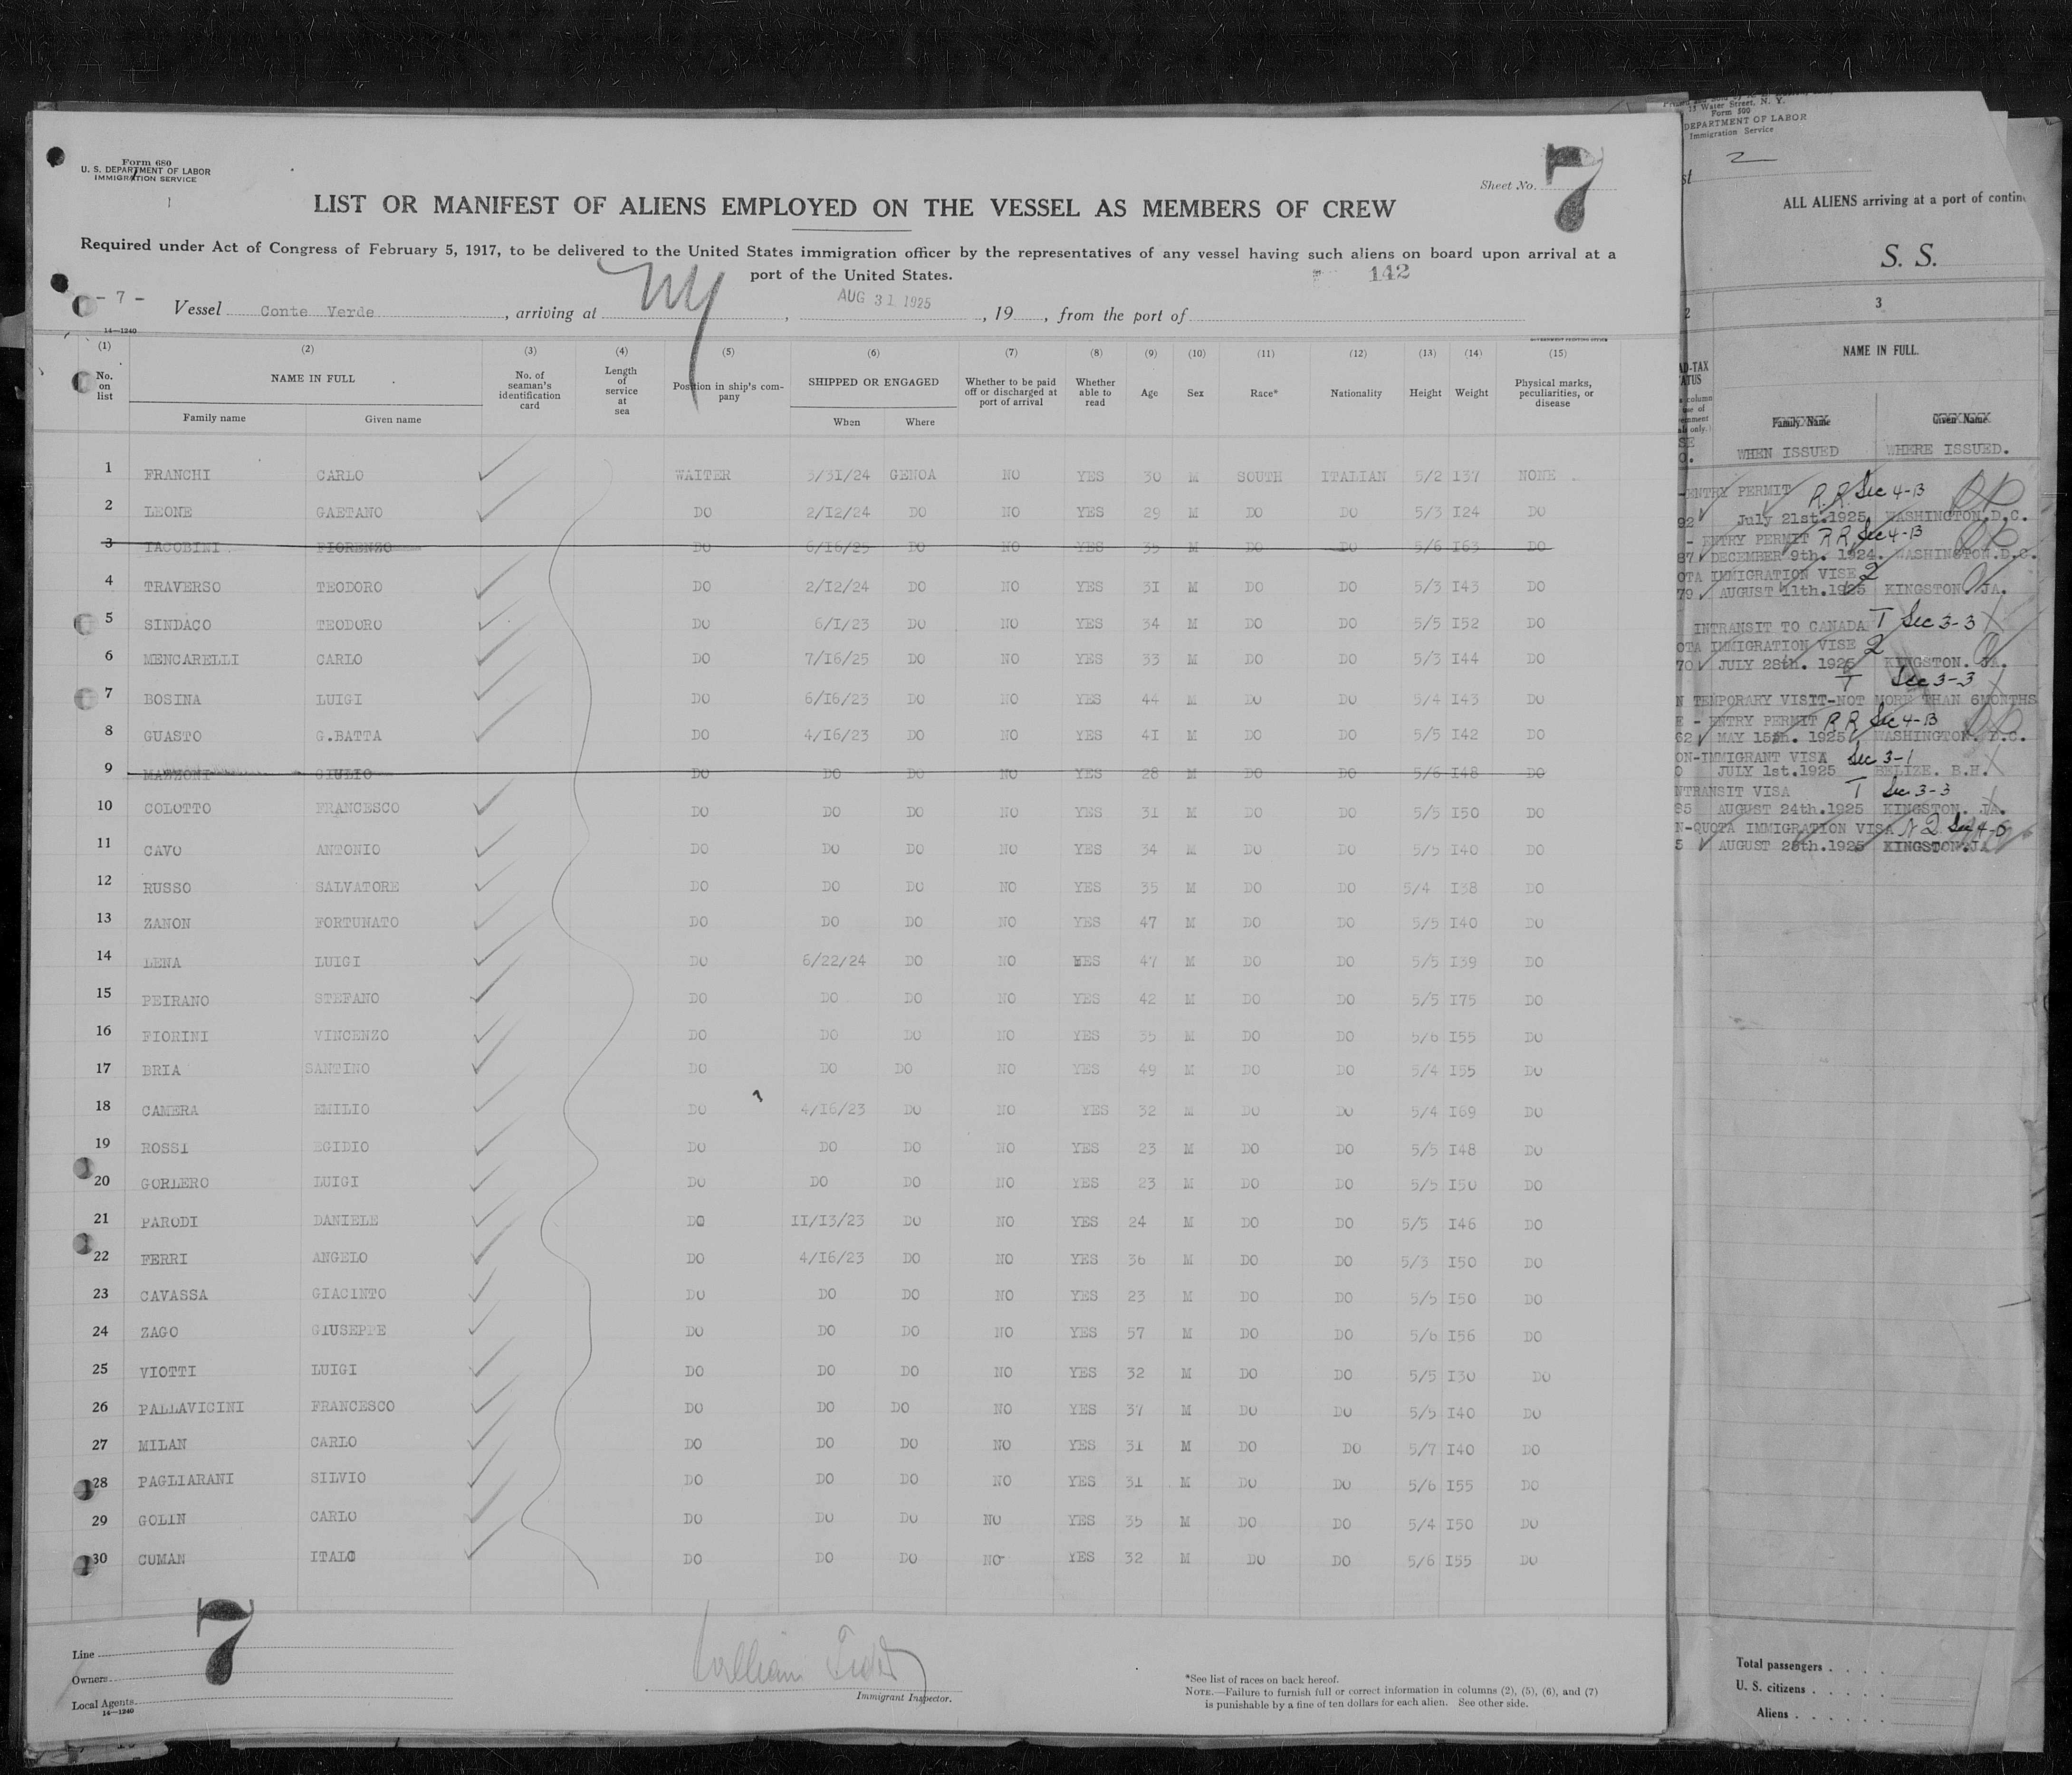 Form 680
U. S. DEPARTMENT OF LABOR
IMMIGRATION SERVICE
Sheet No. 7
LIST OR MANIFEST OF ALIENS EMPLOYED ON THE VESSEL AS MEMBERS OF CREW
Required under Act of Congress of February 5, 1917, to be delivered to the United States immigration officer by the representatives of any vessel having such aliens on board upon arrival at a
port of the United States.
142
- 7 -
Vessel Conte Verde, arriving at NY, AUG 31 1925, 19, from the port of
14—1240
GOVERNMENT PRINTING OFFICE
(1) (2) (3) (4) (5) (6) (7) (8) (9) (10) (11) (12) (13) (14) (15)
No. on list
NAME IN FULL
Family name Given name
No. of seaman's identification card
Length of service at sea
Position in ship's company
SHIPPED OR ENGAGED
When Where
Whether to be paid off or discharged at port of arrival
Whether able to read
Age Sex Race* Nationality Height Weight
Physical marks, peculiarities, or disease
1 FRANCHI CARLO WAITER 5/31/24 GENOA NO YES 30 M SOUTH ITALIAN 5/2 I37 NONE
2 LEONE GAETANO DO 2/I2/24 DO NO YES 29 M DO DO 5/3 I24 DO
3 IACOBINI FIORENZO DO 6/I6/25 DO NO YES 35 M DO DO 5/6 I63 DO
4 TRAVERSO TEODORO DO 2/I2/24 DO NO YES 3I M DO DO 5/3 I43 DO
5 SINDACO TEODORO DO 6/I/23 DO NO YES 34 M DO DO 5/5 I52 DO
6 MENCARELLI CARLO DO 7/I6/25 DO NO YES 33 M DO DO 5/3 I44 DO
7 BOSINA LUIGI DO 6/I6/23 DO NO YES 44 M DO DO 5/4 I43 DO
8 GUASTO G.BATTA DO 4/I6/23 DO NO YES 4I M DO DO 5/5 I42 DO
9 MAZZONI GIULIO DO DO DO NO YES 28 M DO DO 5/6 I48 DO
10 COLOTTO FRANCESCO DO DO DO NO YES 3I M DO DO 5/5 I50 DO
11 CAVO ANTONIO DO DO DO NO YES 34 M DO DO 5/5 I40 DO
12 RUSSO SALVATORE DO DO DO NO YES 35 M DO DO 5/4 I38 DO
13 ZANON FORTUNATO DO DO DO NO YES 47 M DO DO 5/5 I40 DO
14 LENA LUIGI DO 6/22/24 DO NO YES 47 M DO DO 5/5 I39 DO
15 PEIRANO STEFANO DO DO DO NO YES 42 M DO DO 5/5 I75 DO
16 FIORINI VINCENZO DO DO DO NO YES 35 M DO DO 5/6 I55 DO
17 BRIA SANTINO DO DO DO NO YES 49 M DO DO 5/4 I55 DO
18 CAMERA EMILIO DO 4/I6/23 DO NO YES 32 M DO DO 5/4 I69 DO
19 ROSSI EGIDIO DO DO DO NO YES 23 M DO DO 5/5 I48 DO
20 GORLERO LUIGI DO DO DO NO YES 23 M DO DO 5/5 I50 DO
21 PARODI DANIELE DO II/I3/23 DO NO YES 24 M DO DO 5/5 I46 DO
22 FERRI ANGELO DO 4/I6/23 DO NO YES 36 M DO DO 5/3 I50 DO
23 CAVASSA GIACINTO DO DO DO NO YES 23 M DO DO 5/5 I50 DO
24 ZAGO GIUSEPPE DO DO DO NO YES 57 M DO DO 5/6 I56 DO
25 VIOTTI LUIGI DO DO DO NO YES 32 M DO DO 5/5 I30 DO
26 PALLAVICINI FRANCESCO DO DO DO NO YES 37 M DO DO 5/5 I40 DO
27 MILAN CARLO DO DO DO NO YES 31 M DO DO 5/7 I40 DO
28 PAGLIARANI SILVIO DO DO DO NO YES 31 M DO DO 5/6 I55 DO
29 GOLIN CARLO DO DO DO NO YES 35 M DO DO 5/4 I50 DO
30 CUMAN ITALO DO DO DO NO YES 32 M DO DO 5/6 I55 DO
7
Line
Owners
Local Agents
14—1240
William
Immigrant Inspector.
*See list of races on back hereof.
NOTE.—Failure to furnish full or correct information in columns (2), (5), (6), and (7)
is punishable by a fine of ten dollars for each alien. See other side.
Water Street, N. Y.
Form 500
DEPARTMENT OF LABOR
Immigration Service
2
ALL ALIENS arriving at a port of contin
S. S.
2 3
NAME IN FULL.
Family Name Given Name
WHEN ISSUED WHERE ISSUED.
ENTRY PERMIT R.R Sec 4-B
92 July 21st.1925 WASHINGTON.D.C.
- ENTRY PERMIT R R Sec 4-B
87 DECEMBER 9th. 1924. WASHINGTON.D.C.
OTA IMMIGRATION VISE 2
79 AUGUST 11th.1925 KINGSTON. JA.
INTRANSIT TO CANADA T Sec 3-3
OTA IMMIGRATION VISE 2
70 JULY 28th. 1925 KINGSTON. JA.
T Sec 3-3
N TEMPORARY VISIT-NOT MORE THAN 6MONTHS
E - ENTRY PERMIT R R Sec 4-B
62 MAY 15th. 1925 WASHINGTON. D.C.
ON-IMMIGRANT VISA Sec 3-1
JULY 1st.1925 BELIZE. B.H.
NTRANSIT VISA T Sec 3-3
95 AUGUST 24th.1925 KINGSTON. JA.
N-QUOTA IMMIGRATION VISA N Q Sec 4-D
5 AUGUST 28th.1925 KINGSTON.JA
Total passengers
U. S. citizens
Aliens